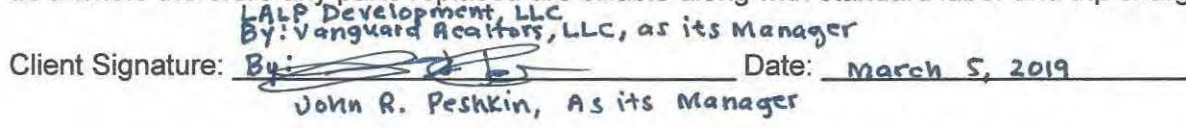 LALP Development, LLC
By: Vanguard Realtors, LLC, as its Manager
Client Signature: By: Date: March 5, 2019
John R. Peshkin, As its Manager